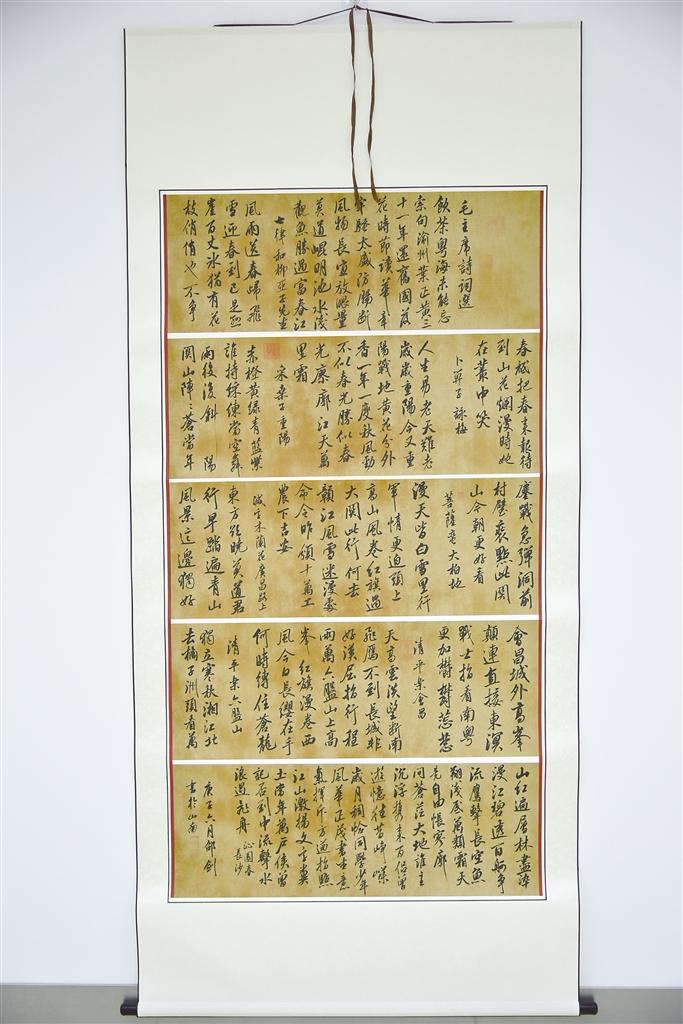 毛主席詩詞選
飲茶粵海未能忘
索句渝州葉正黃三
十一年還舊國落
花時節讀華章
牢騷太盛防腸斷
風物長宜放眼量
莫道崐明池水淺
觀魚勝過富春江
七律和柳亞子先生
風雨送春歸飛
雪迎春到已是懸
崖百丈冰猶有花
枝俏俏也不爭
春祗把春來報待
到山花爛漫時她
在叢中笑
卜算子 詠梅
人生易老天難老
歲歲重陽今又重
陽戰地黃花分外
香一年一度秋風勁
不似春光勝似春
光寥廓江天萬
里霜
采桑子重陽
赤橙黃綠青藍紫
誰持綵練當空舞
雨後復斜陽
関山陣々蒼當年
鏖戰急彈洞前
村壁裝點此関
山今朝更好看
菩薩蛮大柏地
漫天皆白雪里行
軍情更迫頭上
高山風卷紅旗過
大関此行何去
贛江風雪迷漫處
命令昨頒十萬工
農下吉安
減字木蘭花廣昌路上
東方欲曉莫道君
行早踏遍青山
風景這邊獨好
會昌城外高峯
顛連直接東溟
戰士指看南粵
更加鬱鬱葱葱
清平樂會昌
天高雲淡望斷南
飛鴈不到長城非
好漢屈指行程
兩萬六盤山上高
峯紅旗漫卷西
風今日長纓在手
何時縛住蒼龍
清平樂六盤山
獨立寒秋湘江北
去橘子洲頭看萬
山紅遍層林盡染
漫江碧透百舸爭
流鷹擊長空魚
翔淺底萬類霜天
競自由悵寥廓
問蒼茫大地誰主
沉浮攜來百侶曾
遊憶往昔崢嶸
歲月稠恰同學少年
風華正茂書生意
氣揮斥方遒指點
江山激揚文字糞
土當年萬戶侯曾
記否到中流擊水
浪遏飛舟 沁園春 長沙
庚子六月邵劍
書於山南